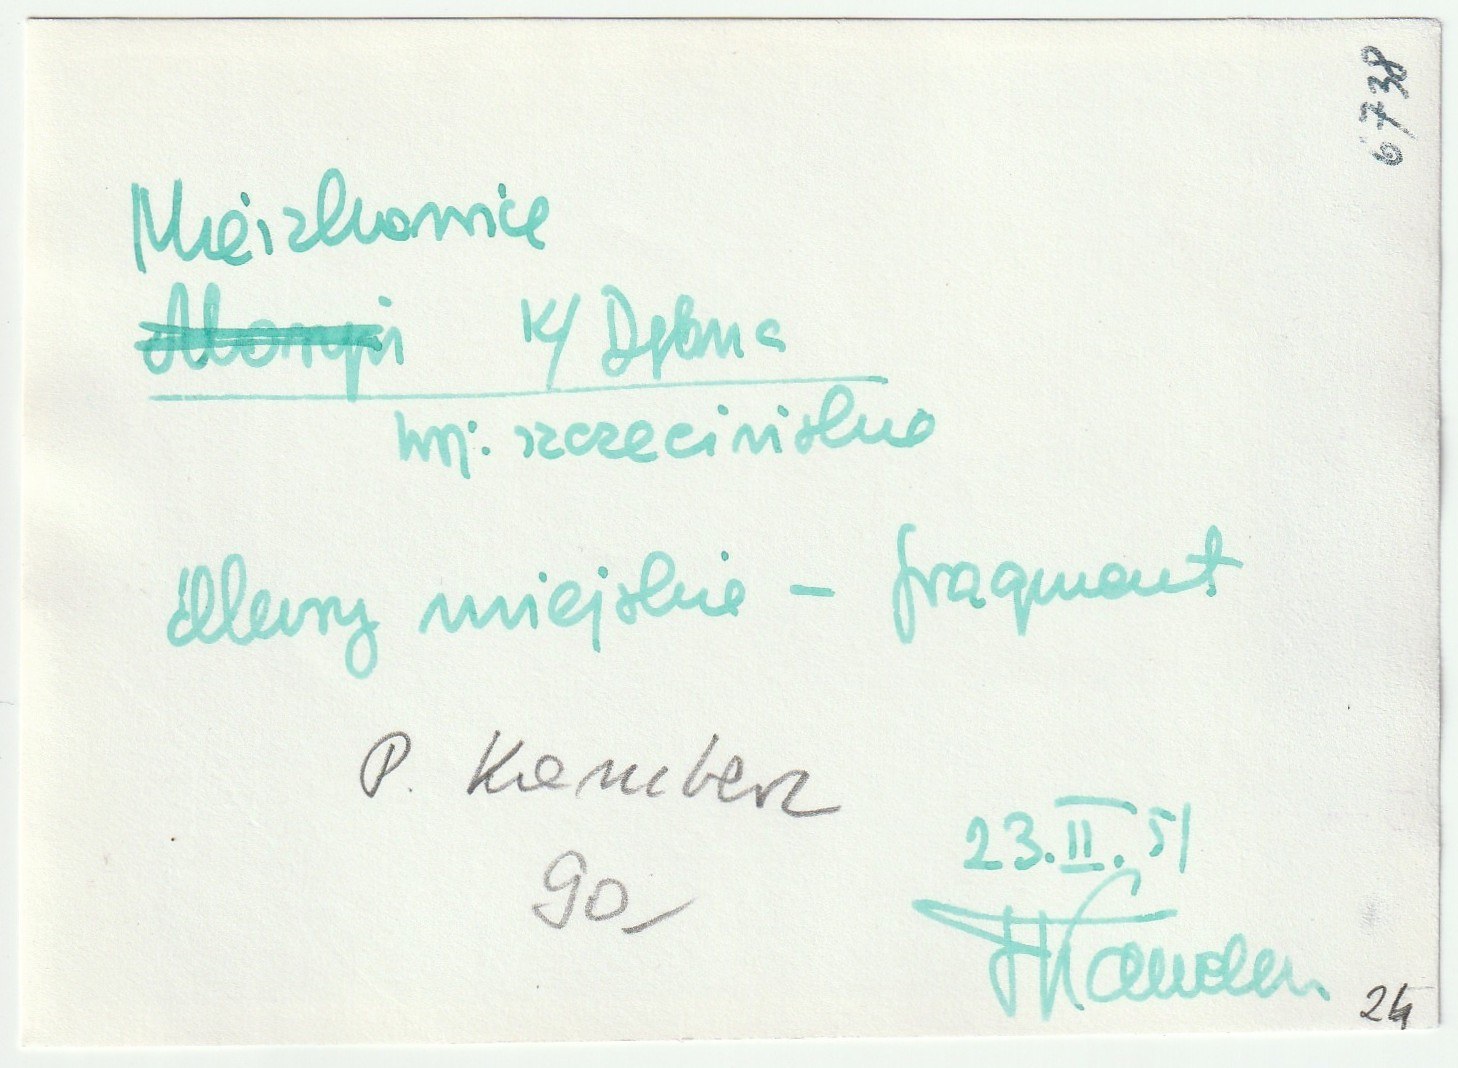 6738
Mieszkowice
K/ Dębna
woj: szczecińskie
Mury miejskie - fragment
P. Kamberz
90
23.II.51
24